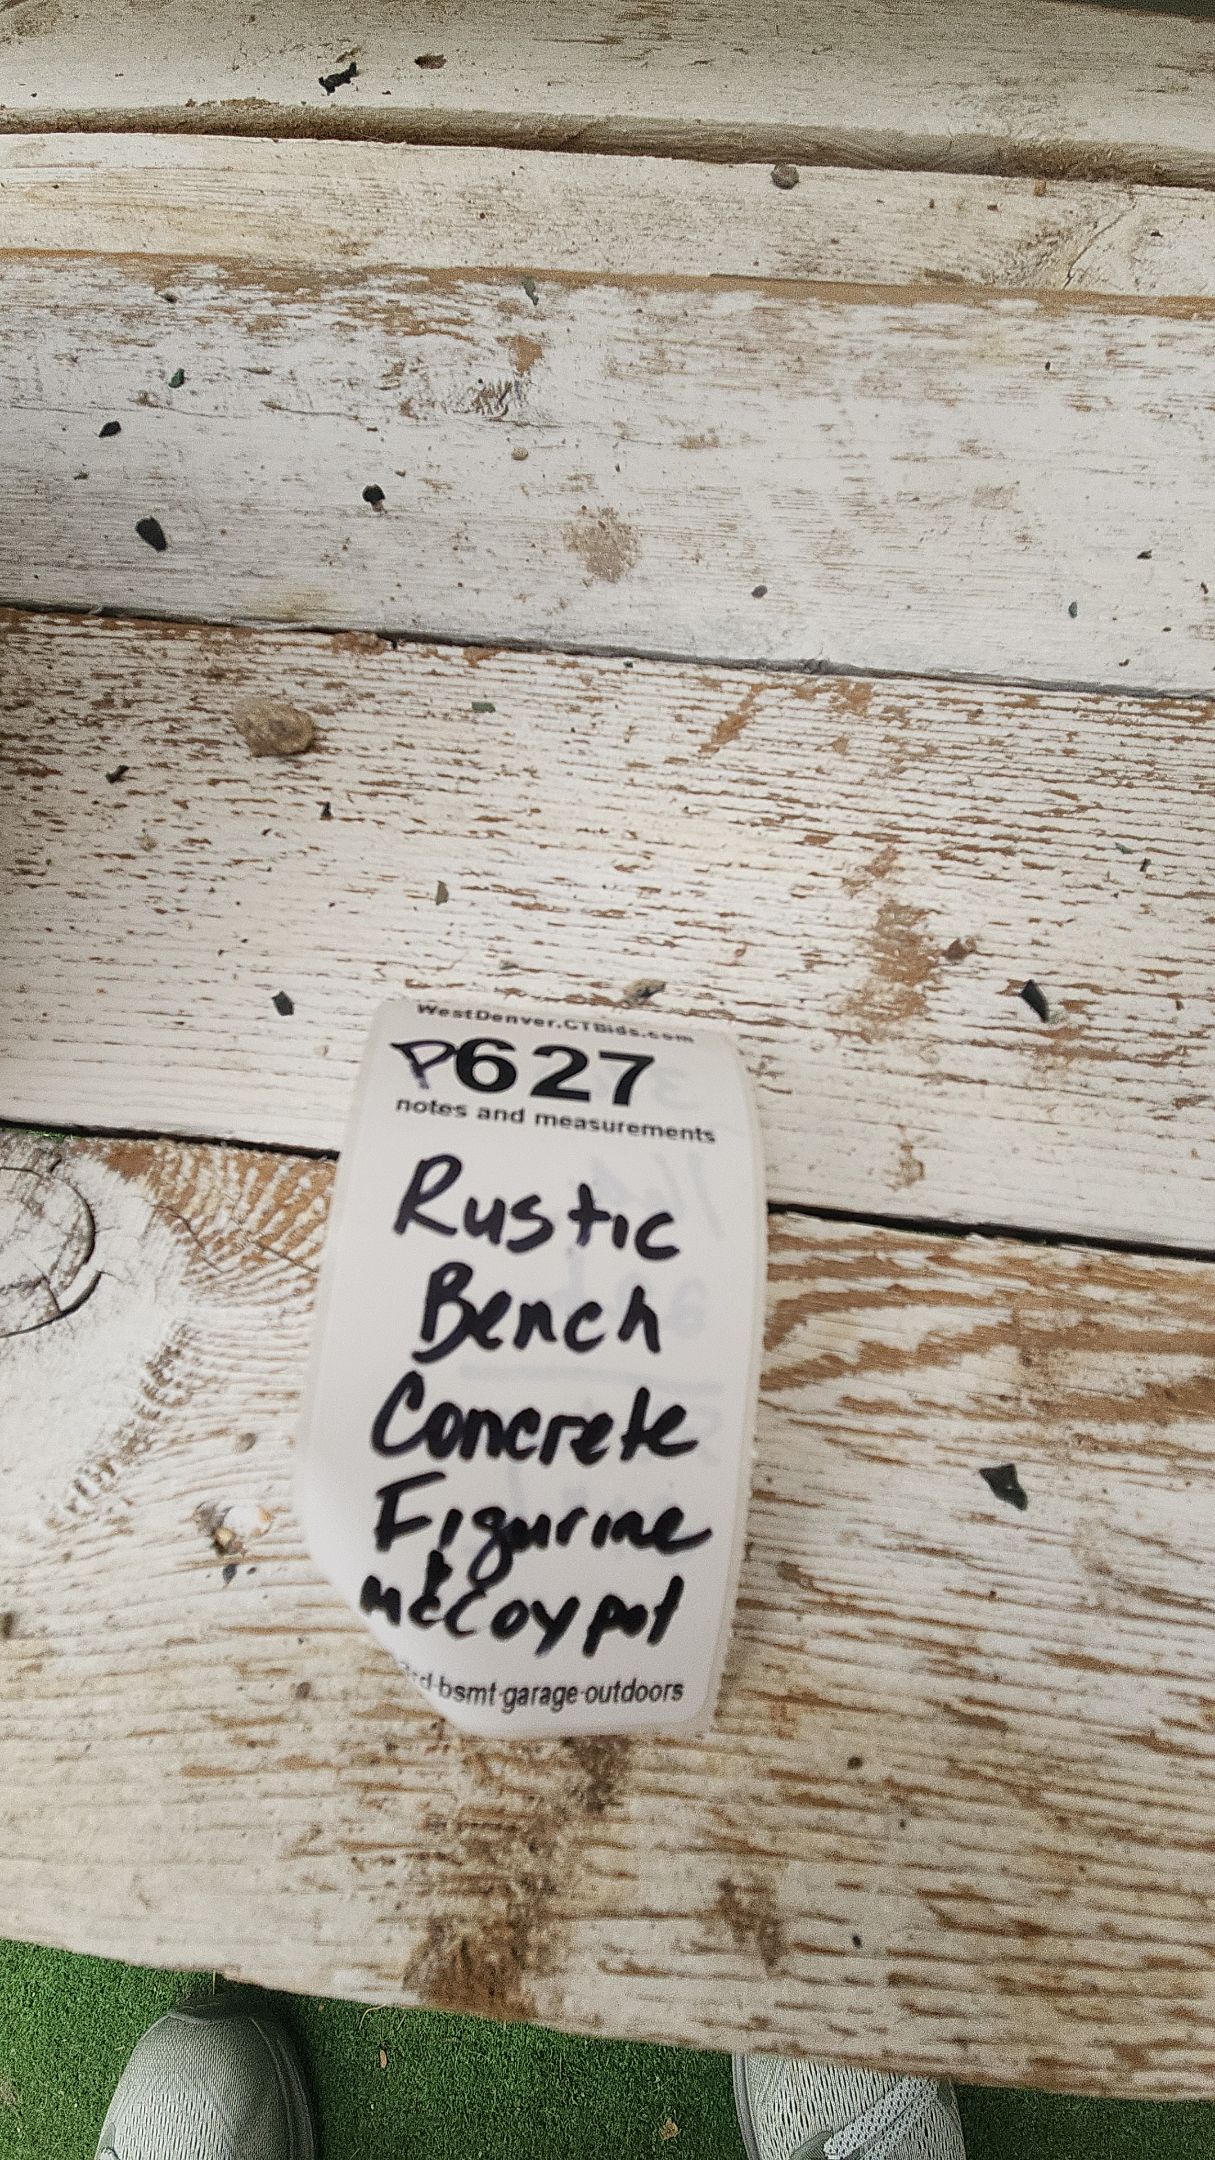 WestDenver.CTBids.com
P627
notes and measurements
Rustic
Bench
Concrete
Figurine
&
McCoy pot
bsmt garage outdoors